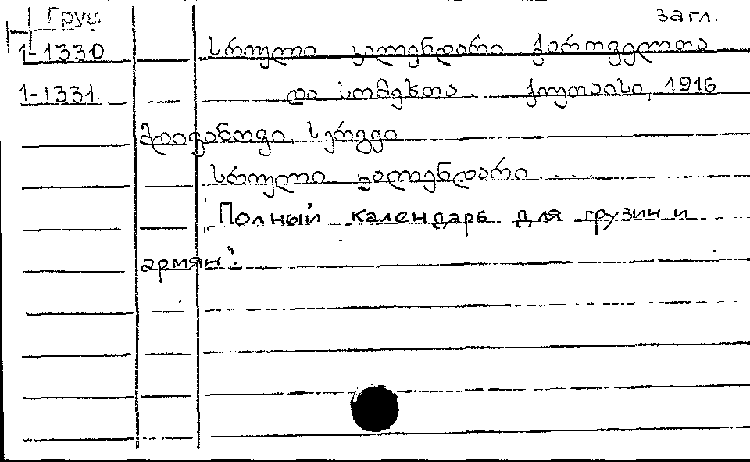 Груз загл.
1-1330 სრული კალენდარი ქართველთა
1-1331 და სომეხთა. ქუთაისი, 1916
სერგეი
სრული კალენდარი
Полный календарь для грузин и
армян.